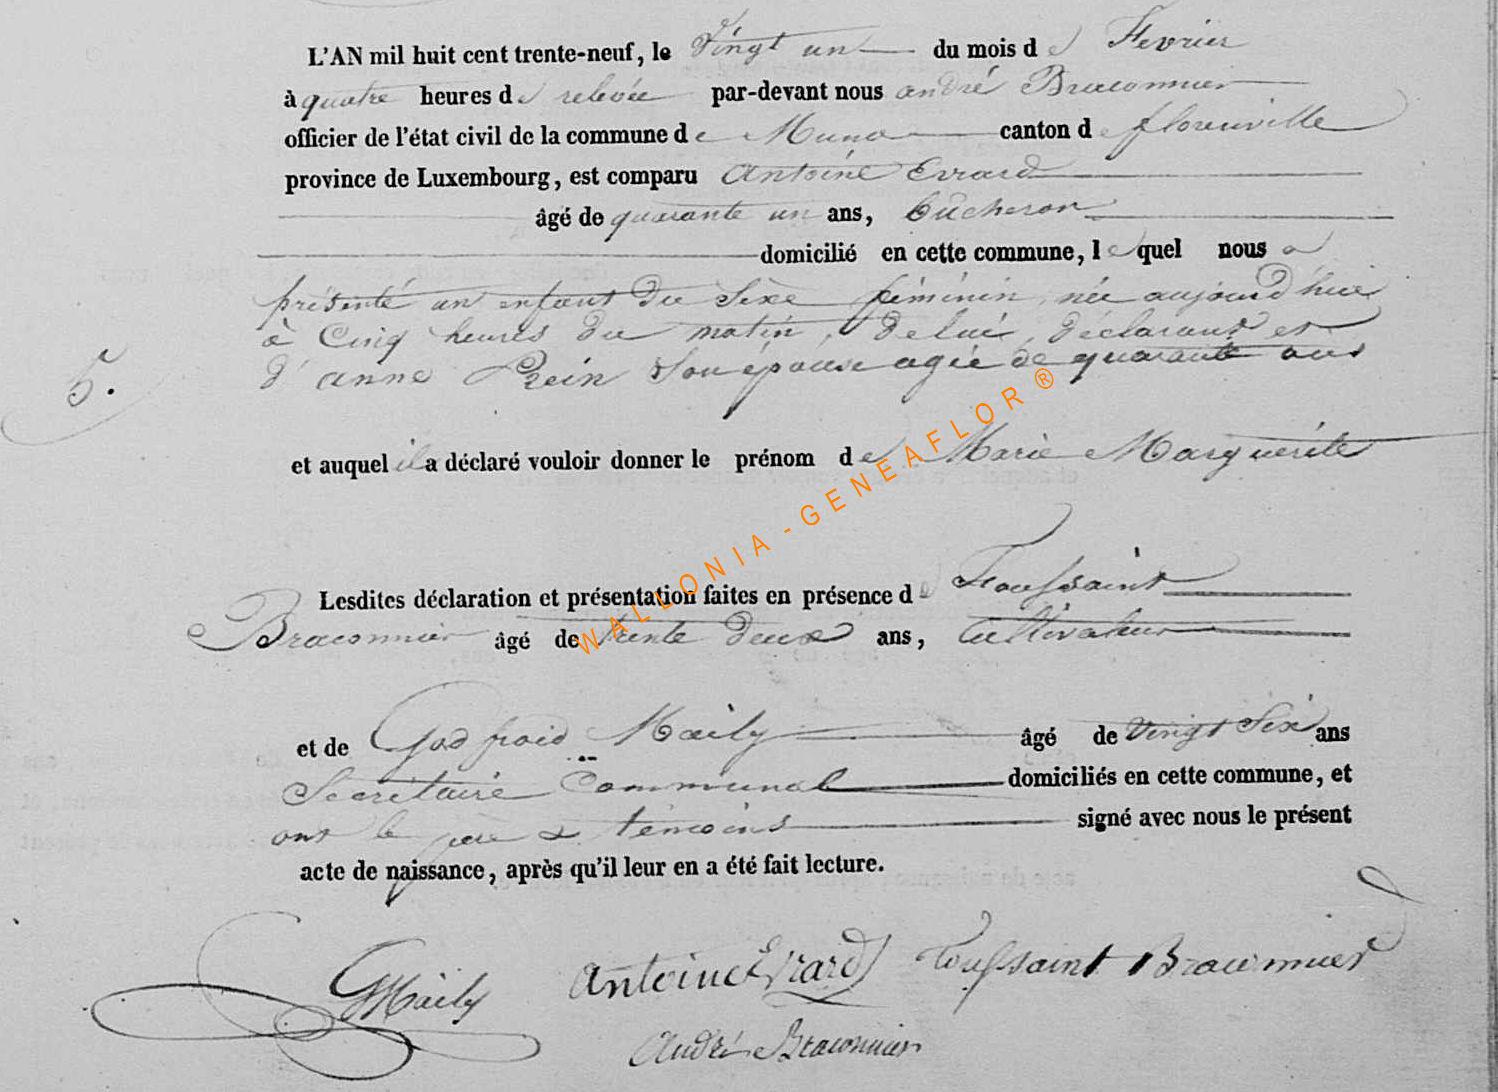 L'AN mil huit cent trente-neuf, le Vingt un du mois de Fevrier
à quatre heures de relevée par-devant nous andré Braconnier
officier de l'état civil de la commune de Muno canton de florenville
province de Luxembourg, est comparu Antoine Evrard
âgé de quarante un ans, bûcheron
domicilié en cette commune, lequel nous a
présenté un enfant du Sèxe féminin née aujourd'hui
à Cinq heures du matin, de lui déclarant et
d'anne Prein Son épouse agée de quarante ans
5.
et auquel il a déclaré vouloir donner le prénom de Marie Marguerite
Lesdites déclaration et présentation faites en présence de Toussaint
Braconnier âgé de trente deux ans, Cultivateur
et de Godfroid Maily âgé de Vingt Six ans
Secrétaire Communal domiciliés en cette commune, et
ont le père & témoins signé avec nous le présent
acte de naissance, après qu'il leur en a été fait lecture.
GMaily Antoine Evrard Toussaint Braconnier
André Braconnier
WALLONIA-GENEAFLOR®